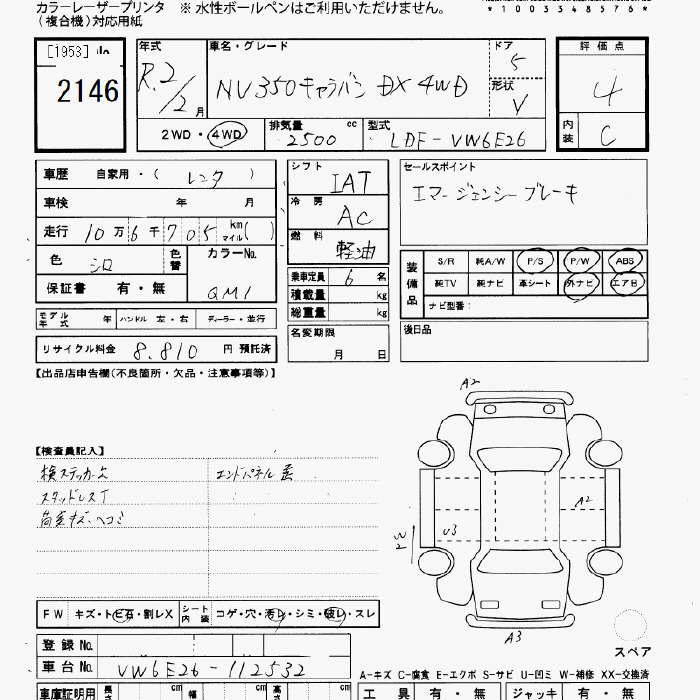 カラーレーザープリンタ ※ 水性ボールペンはご利用いただけません。
(複合機)対応用紙
*1003348576*
[1953]
2146
年式 R.2/2月
車名・グレード NV350キャラバン DX 4WD
ドア 5
形状 V
2WD・4WD
排気量 2500 cc
型式 LDF-VW6E26
評価点 4
内装 C
車歴 自家用・(レンタ)
車検 年 月
走行 10万6千705 km マイル( )
色 シロ 色替
カラーNo. QM1
保証書 有・無
モデル年式 年 ハンドル 左・右 ディーラー・並行
リサイクル料金 8,810 円 預託済
シフト IAT
冷房 AC
燃料 軽油
乗車定員 6 名
積載量 kg
総重量 kg
名変期限 月 日
セールスポイント
エマージェンシーブレーキ
装備品 S/R 純A/W P/S P/W ABS
純TV 純ナビ 革シート 外ナビ エアB
ナビ型番:
後日品
【出品店申告欄(不良箇所・欠品・注意事項等)】
【検査員記入】
検ステッカー欠 エンドパネル歪
スタッドレスT
荷室キズ・ヘコミ
A2
A2
U3
W2
A3
スペア
FW キズ・トビ石・割レX シート内装 コゲ・穴・汚レ・シミ・破レ・スレ
登録 No.
車台 No. VW6E26-112532
A-キズ C-腐食 E-エクボ S-サビ U-凹ミ W-補修 XX-交換済
車庫証明用 長さ cm 幅 cm 高さ cm
工具 有・無 ジャッキ 有・無